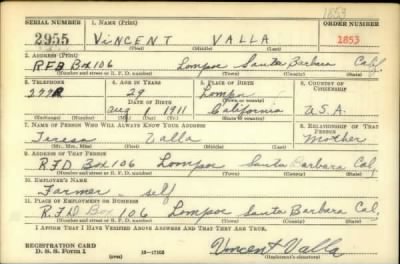 1853
SERIAL NUMBER 1. NAME (Print) ORDER NUMBER
2955 VINCENT VALLA 1853
(First) (Middle) (Last)
2. ADDRESS (Print)
RFD Box 106 Lompoc Santa Barbara Cal.
(Number and street or R. F. D. number) (Town) (County) (State)
3. TELEPHONE 4. AGE IN YEARS 5. PLACE OF BIRTH 6. COUNTRY OF CITIZENSHIP
277R 29 Lompoc
DATE OF BIRTH (Town or county)
Aug 1 1911 California U.S.A.
(Exchange) (Number) (Mo.) (Day) (Yr.) (State or country)
7. NAME OF PERSON WHO WILL ALWAYS KNOW YOUR ADDRESS 8. RELATIONSHIP OF THAT PERSON
Teresa Valla Mother
(Mr., Mrs., Miss) (First) (Middle) (Last)
9. ADDRESS OF THAT PERSON
RFD Box 106 Lompoc Santa Barbara Cal,
(Number and street or R. F. D. number) (Town) (County) (State)
10. EMPLOYER'S NAME
Farmer self
11. PLACE OF EMPLOYMENT OR BUSINESS
R.F.D Box 106 Lompoc Santa Barbara Cal,
(Number and street or R. F. D. number) (Town) (County) (State)
I AFFIRM THAT I HAVE VERIFIED ABOVE ANSWERS AND THAT THEY ARE TRUE.
REGISTRATION CARD
D. S. S. Form 1 (over) 16—17105 Vincent Valla
(Registrant's signature)